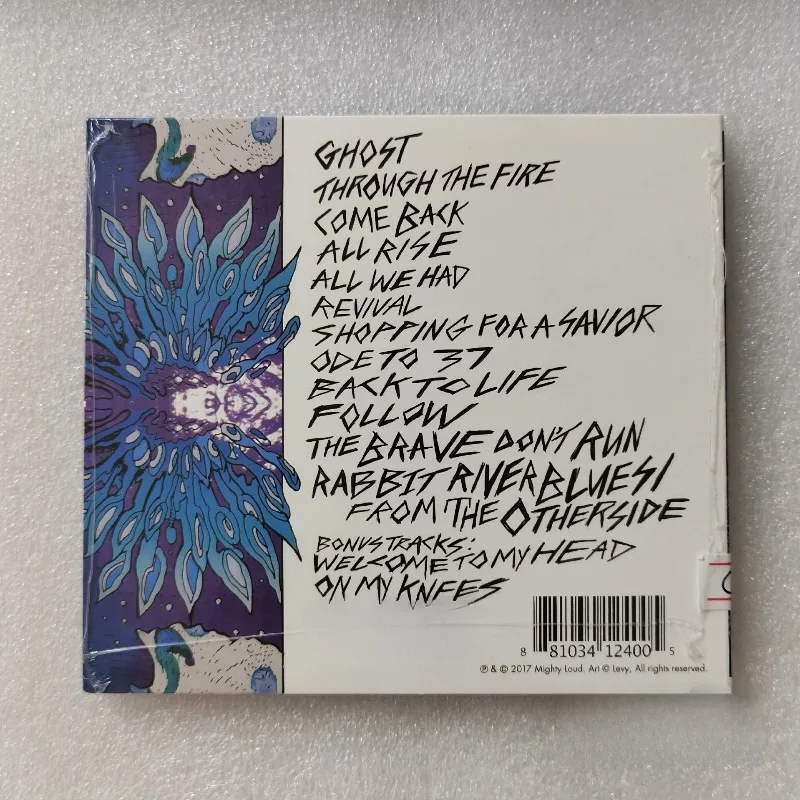 GHOST
THROUGH THE FIRE
COME BACK
ALL RISE
ALL WE HAD
REVIVAL
SHOPPING FOR A SAVIOR
ODE TO 37
BACK TO LIFE
FOLLOW
THE BRAVE DON'T RUN
RABBIT RIVER BLUES/
FROM THE OTHERSIDE
BONUS TRACKS:
WELCOME TO MY HEAD
ON MY KNEES
8 81034 12400 5
℗ & © 2017 Mighty Loud. Art © Levy, All rights reserved.